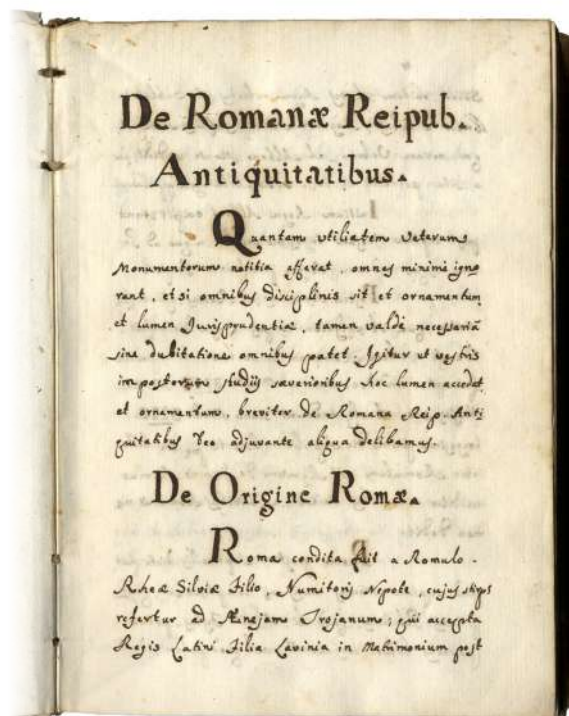 De Romanæ Reipub.
Antiquitatibus.
Quantam utiliatem Veterum
Monumentorum notitia afferat, omnes minimè igno
rant, et si omnibus disciplinis sit et ornamentum
et lumen Jurisprudentiæ, tamen valdè necessariã
sine dubitatione omnibus patet. Igitur ut vestris
imposterum studijs severioribus hoc lumen accedat
et ornamentum, breviter de Romana Reip. Anti
quitatibus Deo adjuvante aliqua delibamus.
De Origine Romæ.
Roma condita fuit a Romulo.
Rheæ Silviæ filio, Numitoris Nepote, cujus stirps
refertur ad Ænejam Trojanum; qui accepta
Regis Latini Filia Lavinia in Matrimonium post